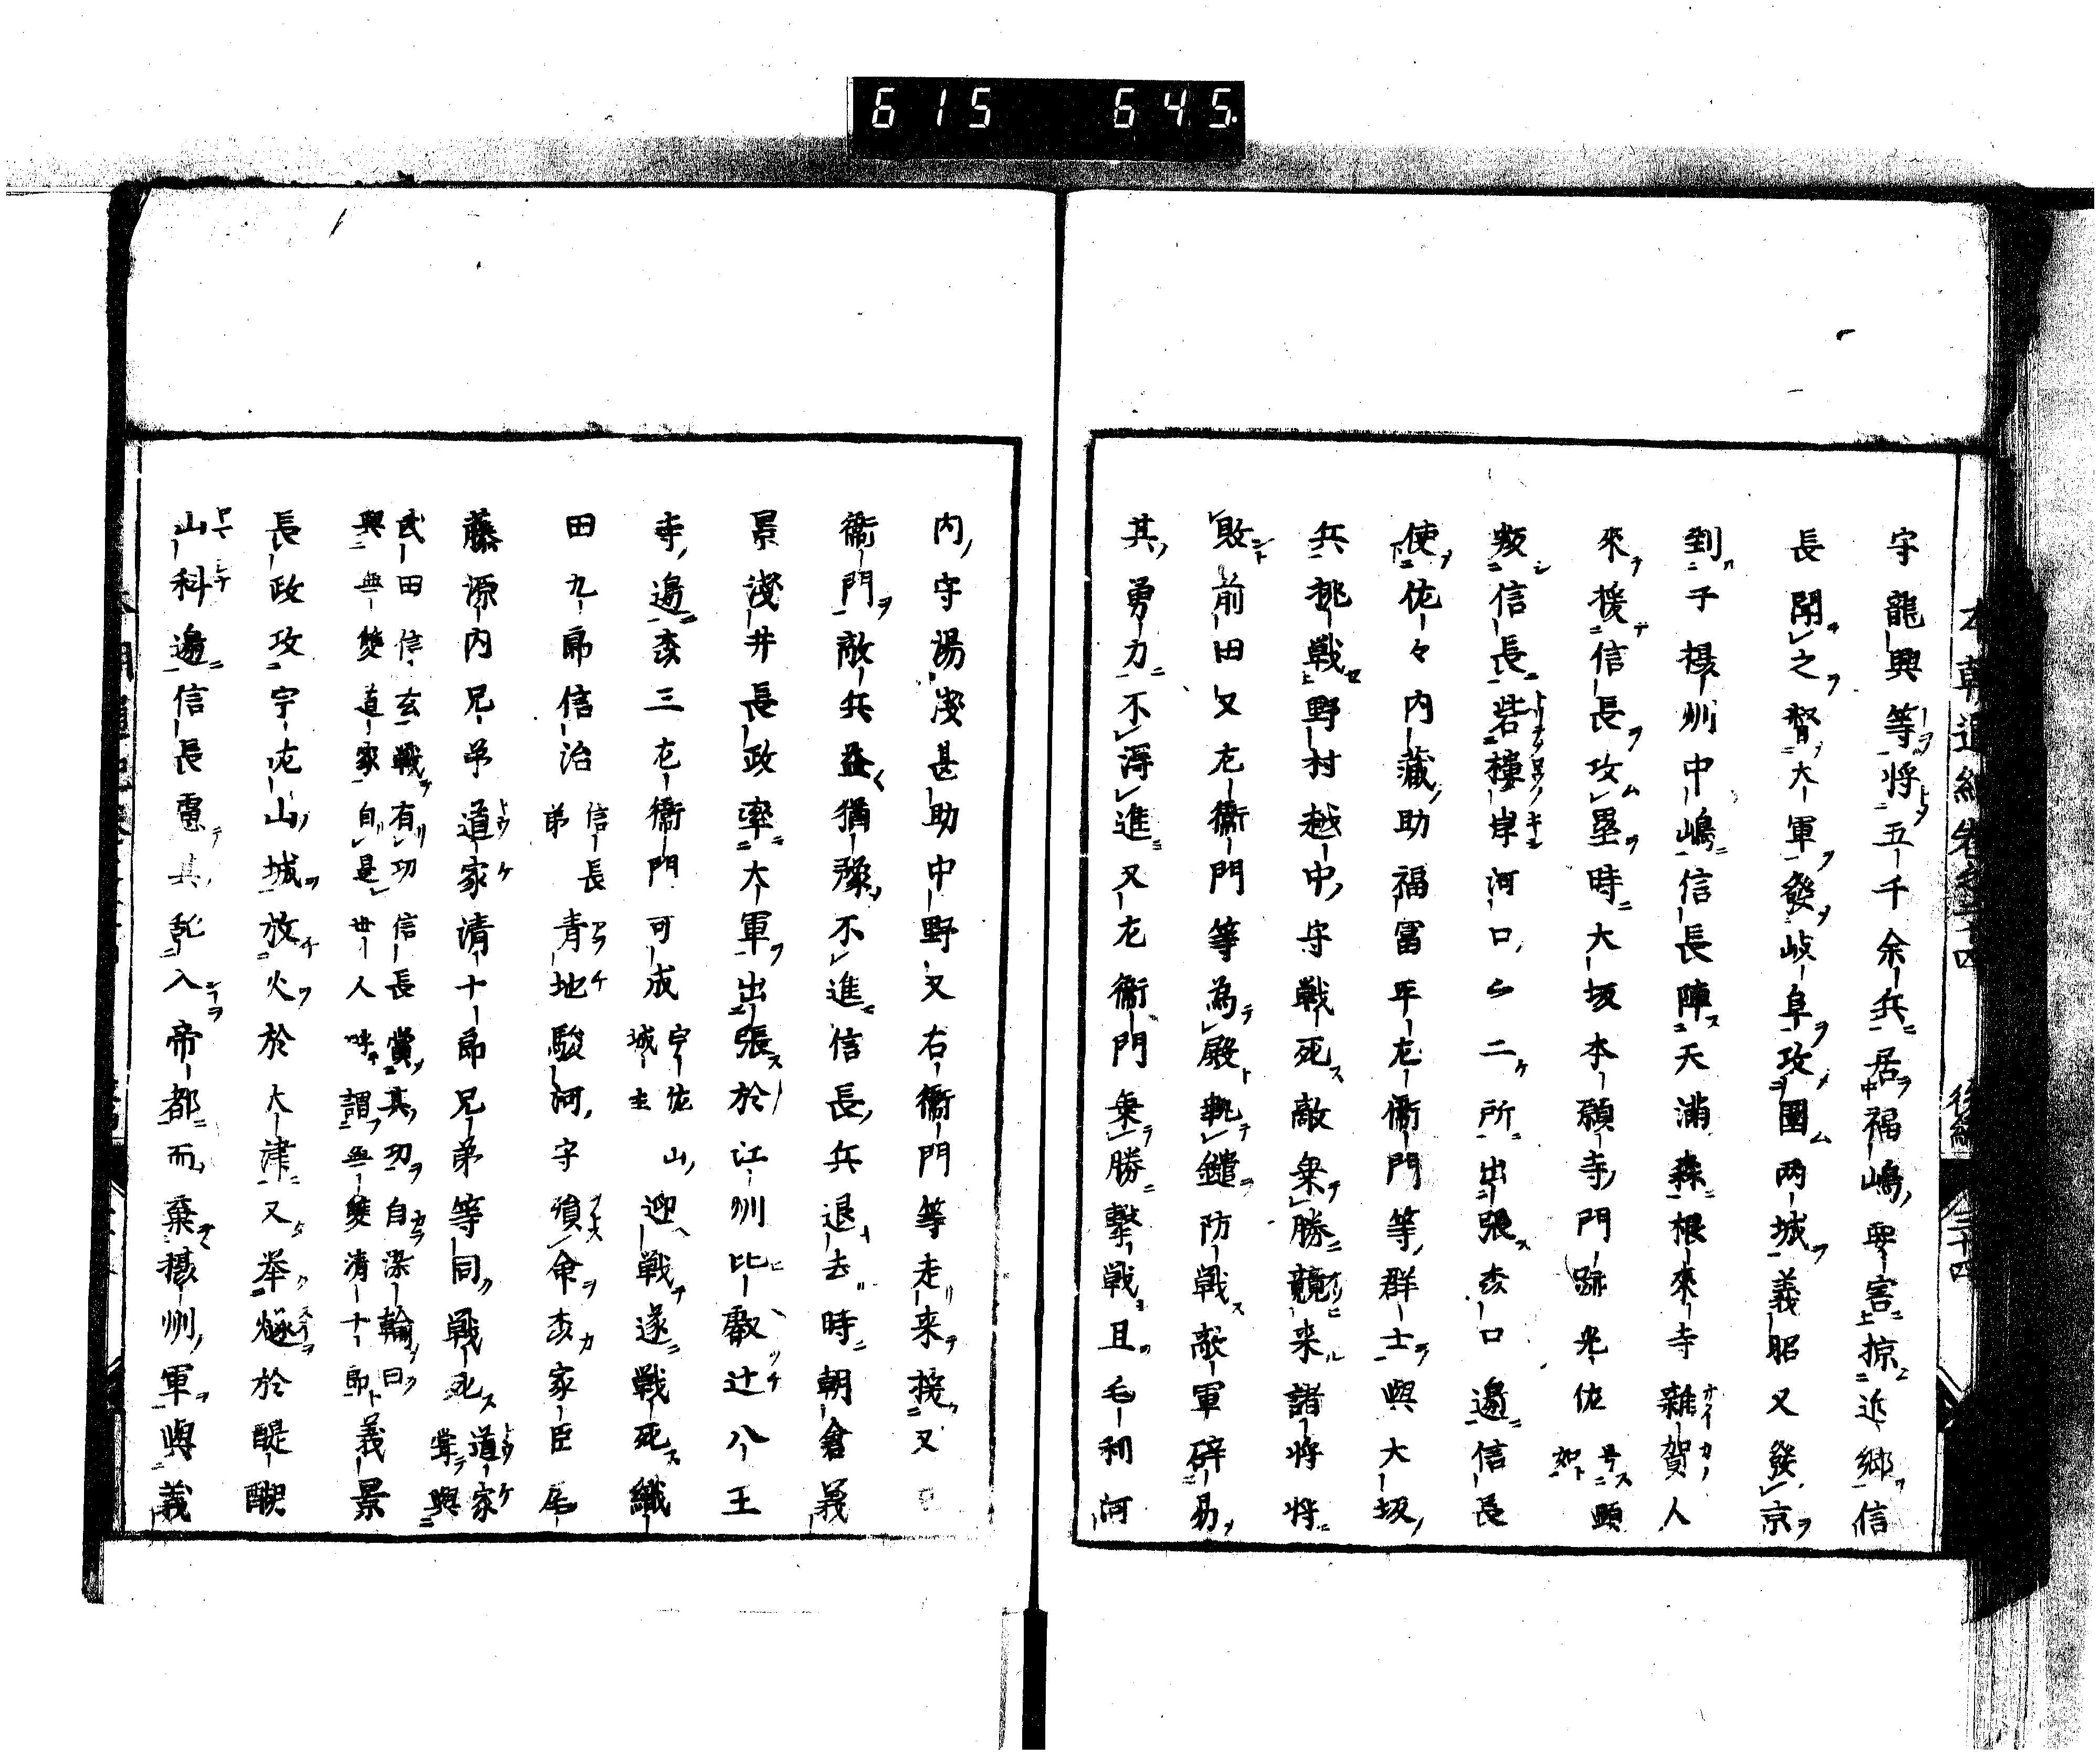 615 645.
守龍興等将五千余兵居福嶋要害掠近郷信
長聞之督大軍發岐阜攻圍两城義昭又發京
到于摂州中嶋信長陣天満森根来寺雑賀人
來援信長攻塁時大坂本願寺門跡光佐号顕如
叛信長砦穫岸河口之二所出張森口邉信長
使佐々内蔵助福冨平左衛門等群士與大坂
兵挑戦野村越中守戦死敵乗勝競来諸将将
敗前田又左衛門等為殿執鑓防戦敵軍辟易
其勇力不得進又左衛門乗勝撃戦且毛利河
内守湯浅甚助中野又右衛門等走来援又
衛門敵兵益猶豫不進信長兵退去時朝倉義
景浅井長政率大軍出張於江州比叡辻八王
寺邉森三左衛門可成宇佐山城主迎戦遂戦死織
田九郎信治信長弟青地駿河守殞命森家臣尾
藤源内兄弟道家清十郎兄弟等同戦死道家嘗與
武田信玄戦有功信長賞其功自染翰曰
無雙道家自是世人呼謂無雙清十郎義景
長政攻宇佐山城放火於大津又挙燧於醍醐
山科邉信長慮其乱入帝都而棄摂州軍與義